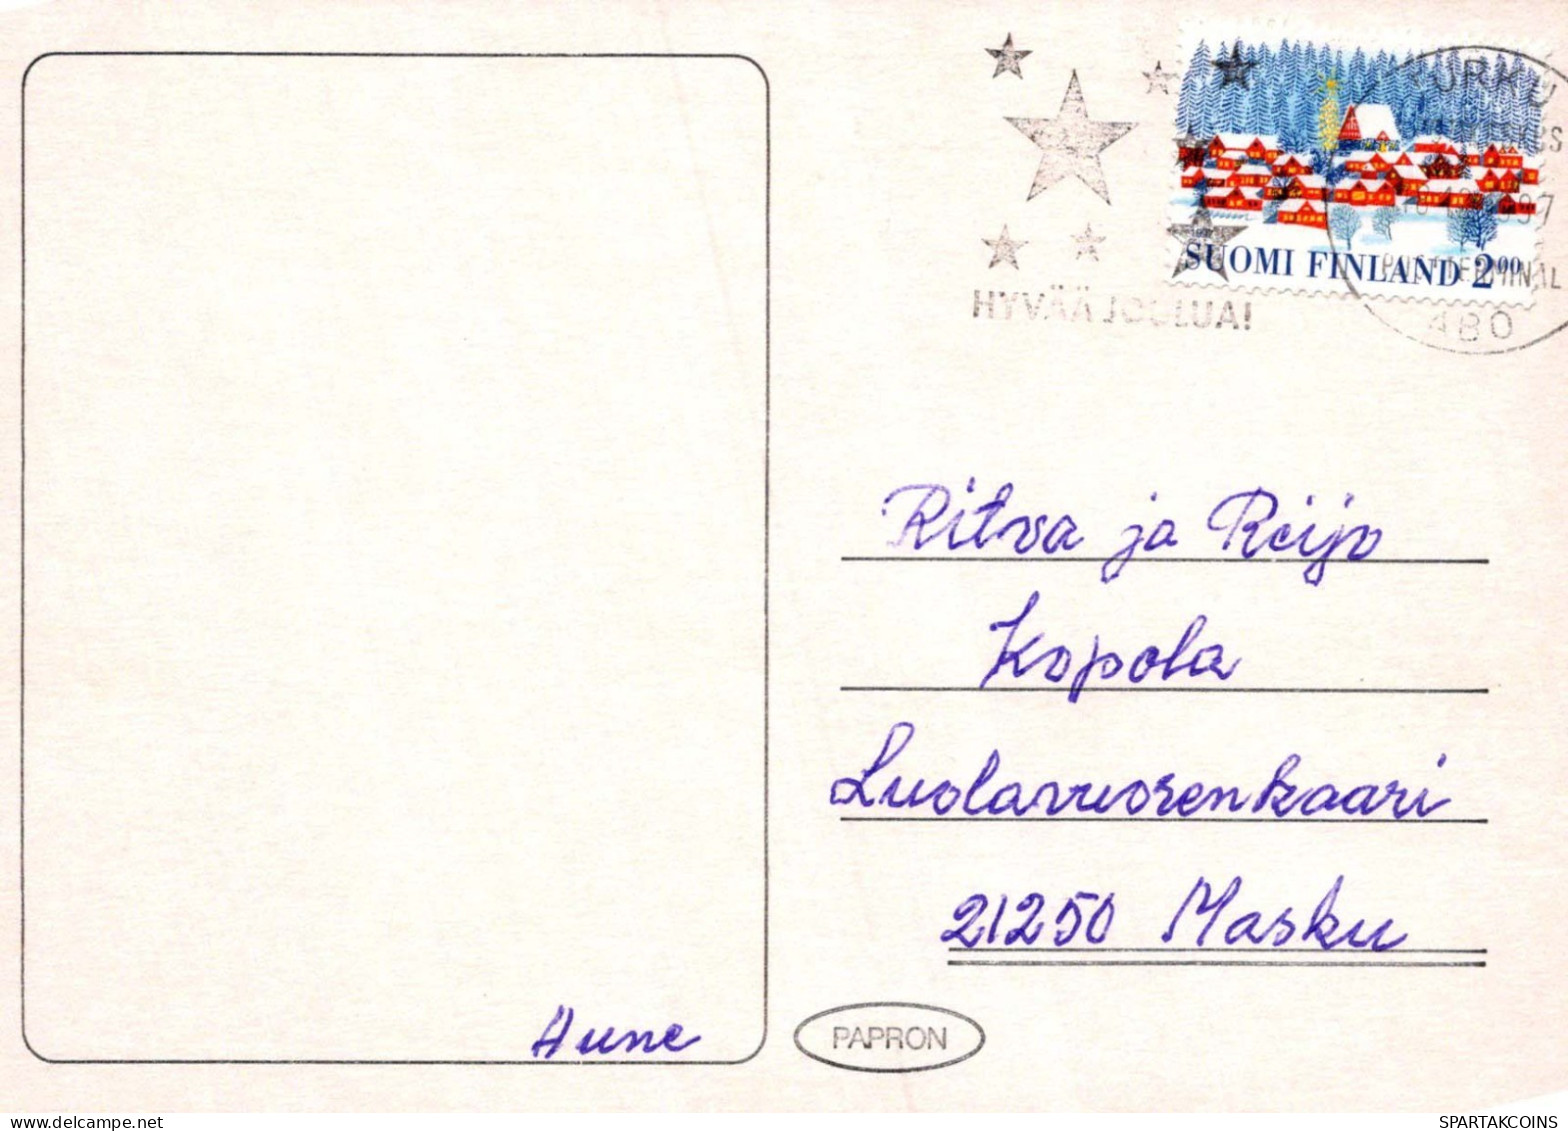 HYVÄÄ JOULUA!
SUOMI FINLAND 2.00
480
Ritva ja Reijo
Kopola
Luolavuorenkaari
21250 Masku
Aune
PAPRON
delcampe.net
SPARTAKCOINS